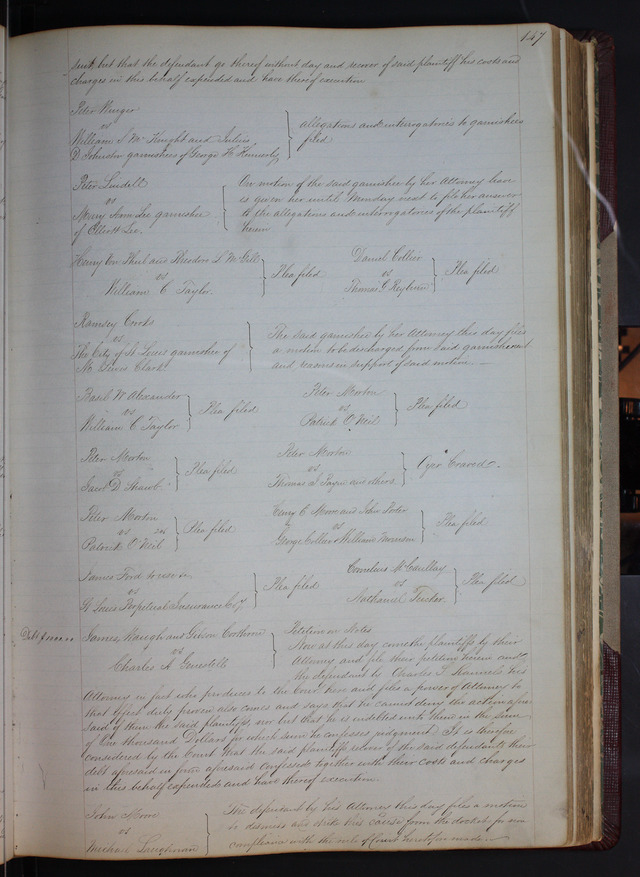 147
suit, but that the defendant go thereof without day and recover of said plaintiff his costs and
charges in this behalf expended and have thereof execution
Peter
vs
William S McKnight and Julius
D Johnston garnishees of George H Kennerly
allegations and interrogatories to garnishees
filed
Peter Lindell
vs
Mary Ann Lee garnishee
of Elliott Lee
On motion of the said garnishee by her Attorney leave
is given her until Monday next to file her answer
to the allegations and interrogatories of the plaintiff
herein
Henry Von Phul and Theodore L McGill
vs
William C Taylor
Plea filed
Daniel Collier
vs
Thomas G Reyburn
Plea filed
Ramsey Crooks
vs
The City of St Louis garnishee of
Clark
The said garnishee by her Attorney this day files
a motion to be discharged from said garnishment
and reasons in support of said motion.
Basil W Alexander
vs
William C Taylor
Plea filed
Peter Morton
vs
Patrick O Neil
Plea filed
Peter Morton
vs
D Shaw
Plea filed
Peter Morton
vs
Thomas J Payne and others
Oyer Craved
Peter Morton
vs
Patrick O Neil
Plea filed
Henry C Moore and John Porter
vs
George Collier & William Morrison
Plea filed
James Ford
vs
St Louis Perpetual Insurance Coy
Plea filed
Cornelius McCaullay
vs
Nathaniel Tucker
Plea filed
James Waugh and Gibson Corthron
vs
Charles A
Petition in Notes
Now at this day come the plaintiffs by their
Attorney and file their petition herein and
the defendant by Charles S his
Attorney in fact who produces to the Court here and files a power of Attorney to
that effect duly proven also comes and says that he cannot deny the action afore
said of them the said plaintiffs, nor but that he is indebted unto them in the sum
of One thousand Dollars for which sum he confesses judgment. It is therefore
considered by the Court that the said plaintiffs recover of the said defendant their
debt aforesaid in form aforesaid confessed together with their costs and charges
in this behalf expended and have thereof execution.
John Moore
vs
Michael Laughman
The defendant by his Attorney this day files a motion
to dismiss and strike this cause from the docket for non
compliance with the rule of Court heretofore made